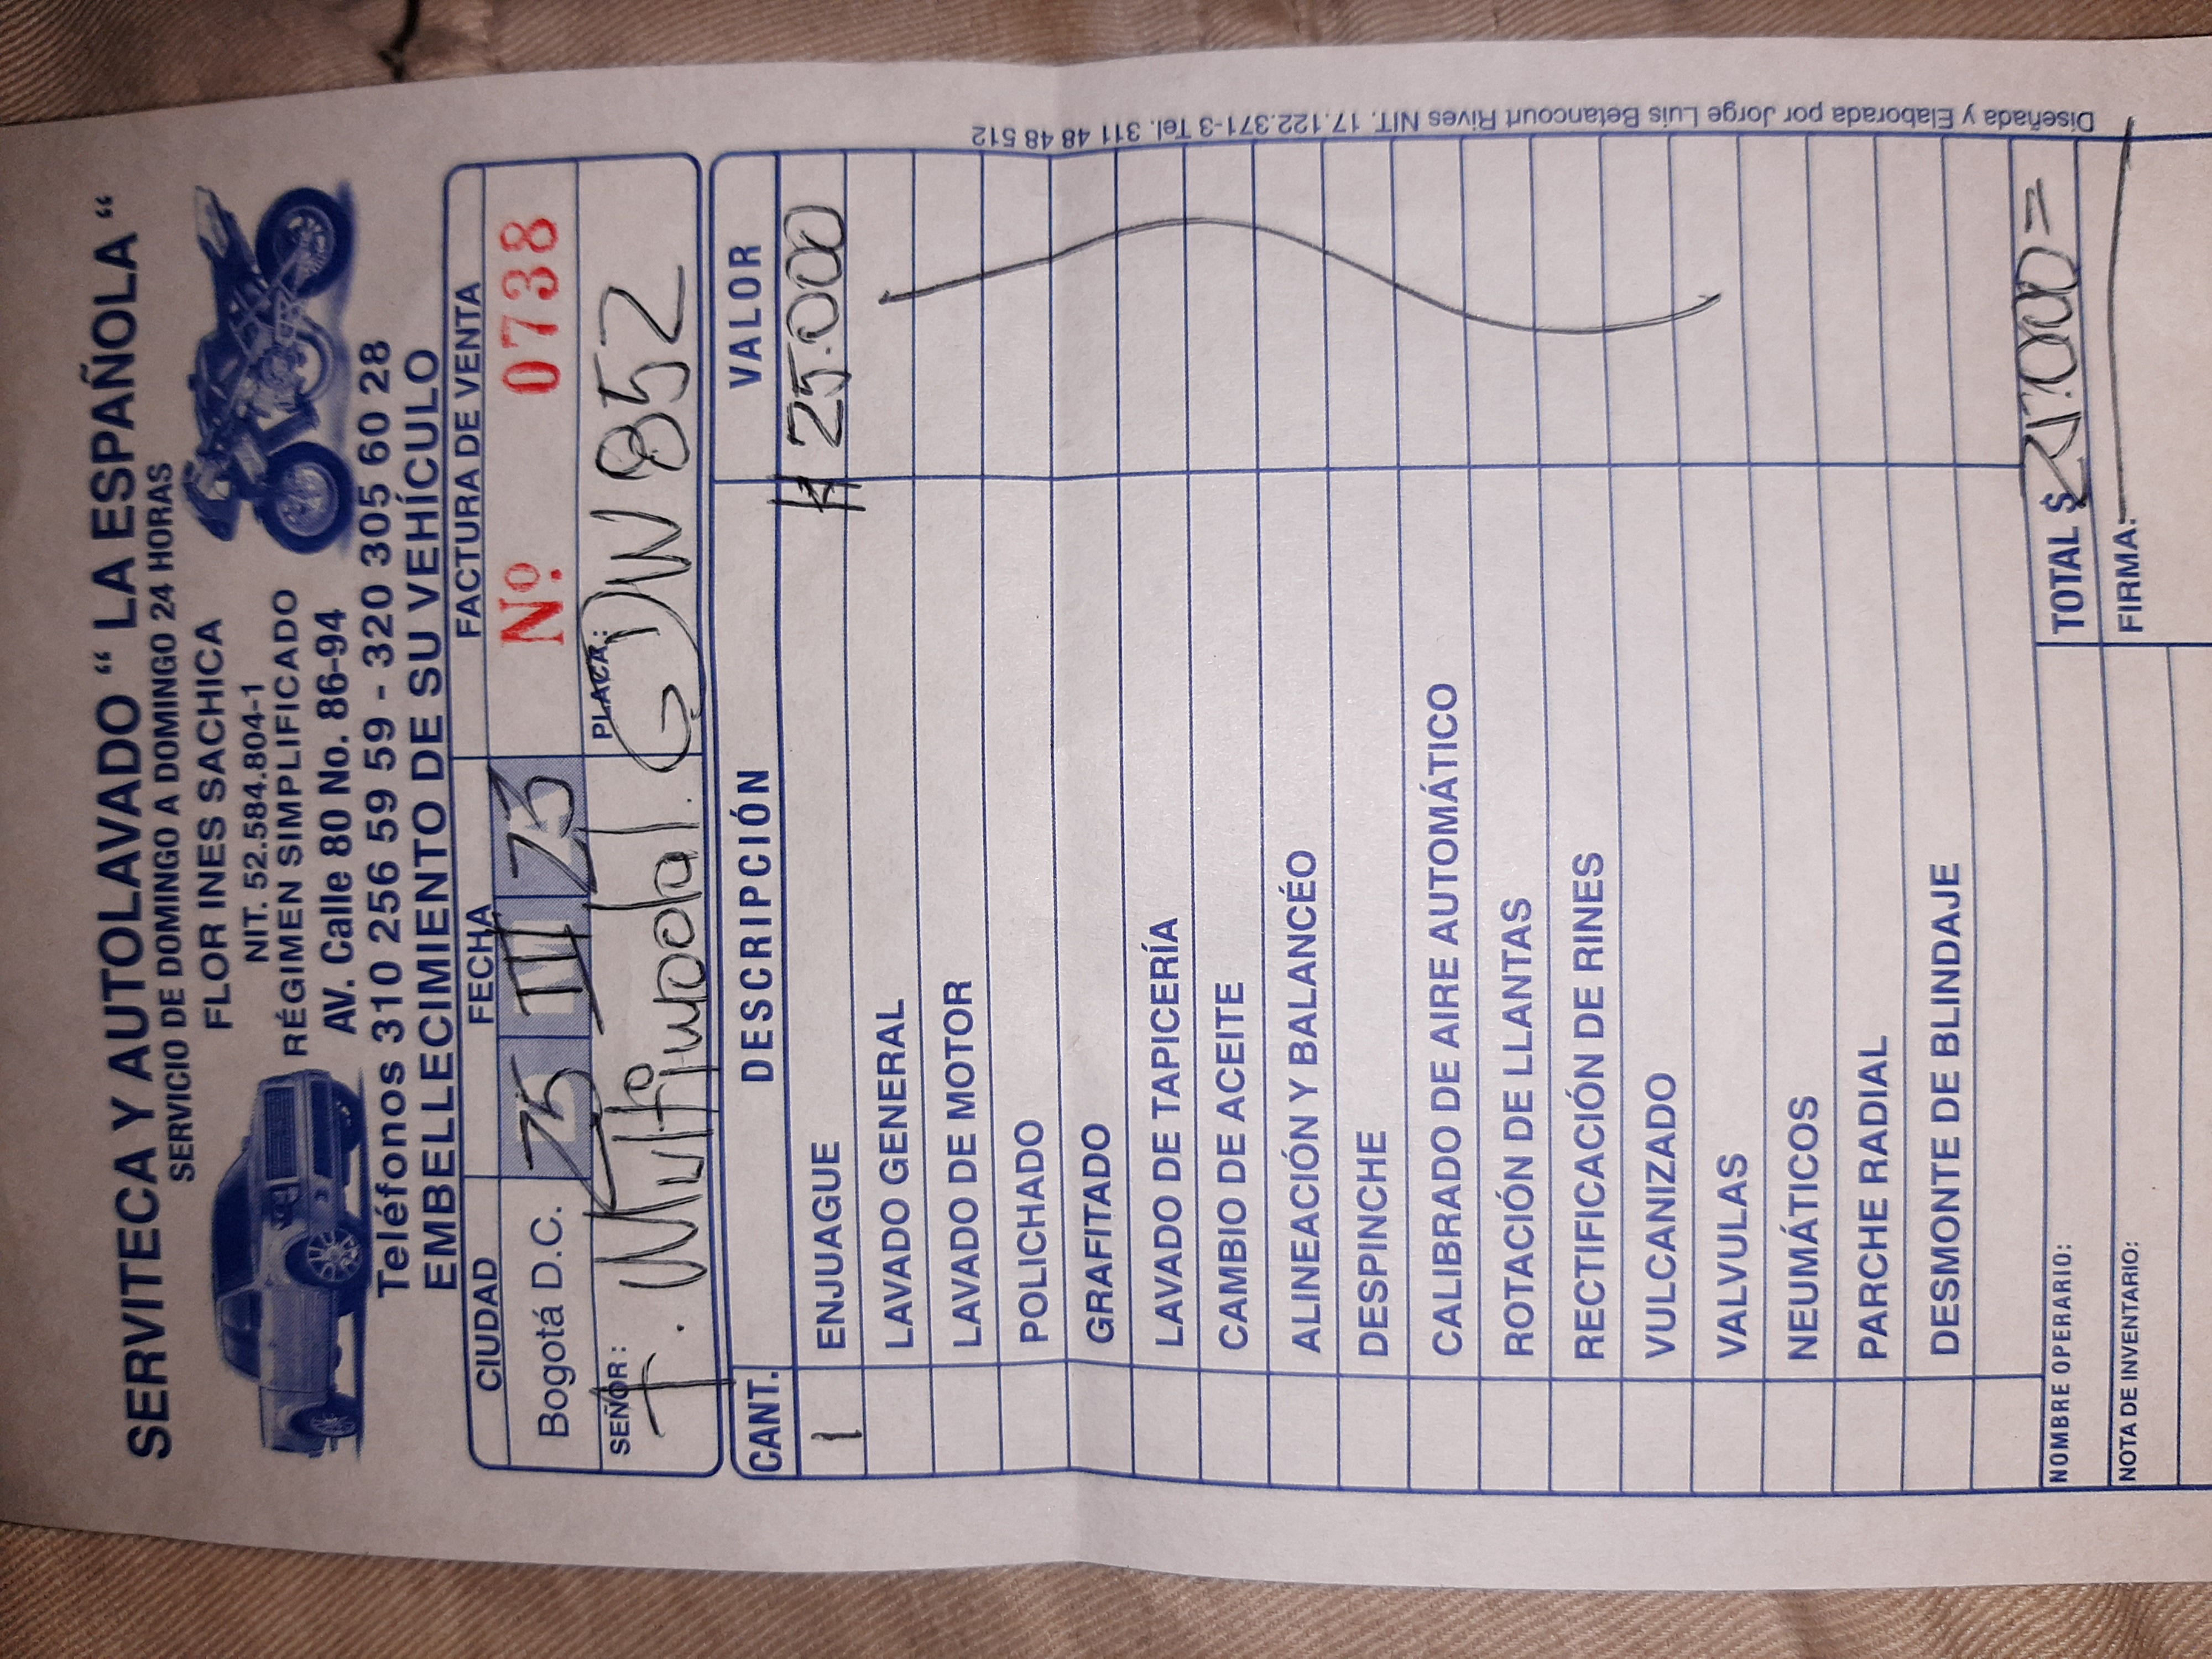 SERVITECA Y AUTOLAVADO “ LA ESPAÑOLA “
SERVICIO DE DOMINGO A DOMINGO 24 HORAS
FLOR INES SACHICA
NIT. 52.584.804-1
RÉGIMEN SIMPLIFICADO
AV. Calle 80 No. 86-94
Teléfonos 310 256 59 59 - 320 305 60 28
EMBELLECIMIENTO DE SU VEHÍCULO
CIUDAD FECHA FACTURA DE VENTA
Bogotá D.C. 25 III 23 Nº. 0738
SEÑOR: T. Multimodal. PLACA: GDW 852
CANT. DESCRIPCIÓN VALOR
1 ENJUAGUE 25.000
LAVADO GENERAL
LAVADO DE MOTOR
POLICHADO
GRAFITADO
LAVADO DE TAPICERÍA
CAMBIO DE ACEITE
ALINEACIÓN Y BALANCÉO
DESPINCHE
CALIBRADO DE AIRE AUTOMÁTICO
ROTACIÓN DE LLANTAS
RECTIFICACIÓN DE RINES
VULCANIZADO
VALVULAS
NEUMÁTICOS
PARCHE RADIAL
DESMONTE DE BLINDAJE
NOMBRE OPERARIO: TOTAL $ 25.000=
NOTA DE INVENTARIO: FIRMA:
Diseñada y Elaborada por Jorge Luis Betancourt Rives NIT. 17.122.371-3 Tel. 311 48 48 512